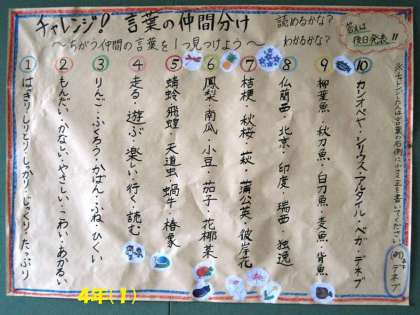 チャレンジ！ 言葉の仲間分け
読めるかな？
わかるかな？
答えは
後日発表！！
〜ちがう仲間の言葉を1つ見つけよう〜
① はっきり・しりとり・しっかり・じっくり・たっぷり
② もんだい・かない・やさしい・こわい・あかるい
③ りんご・ふくろう・かばん・ふね・ひくい
④ 走る・遊ぶ・楽しい・行く・読む
⑤ 蜻蛉・飛蝗・天道虫・蝸牛・椿象
⑥ 鳳梨・南瓜・小豆・茄子・花椰菜
⑦ 桔梗・秋桜・萩・蒲公英・彼岸花
⑧ 仏蘭西・北京・印度・瑞西・独逸
⑨ 柳葉魚・秋刀魚
⑩ カシオペヤ・シリウス・アルタイル・ベガ・デネブ
※チャレンジした人は言葉の右側に小さな正を書いてください
(例)デネブ
4年(1)